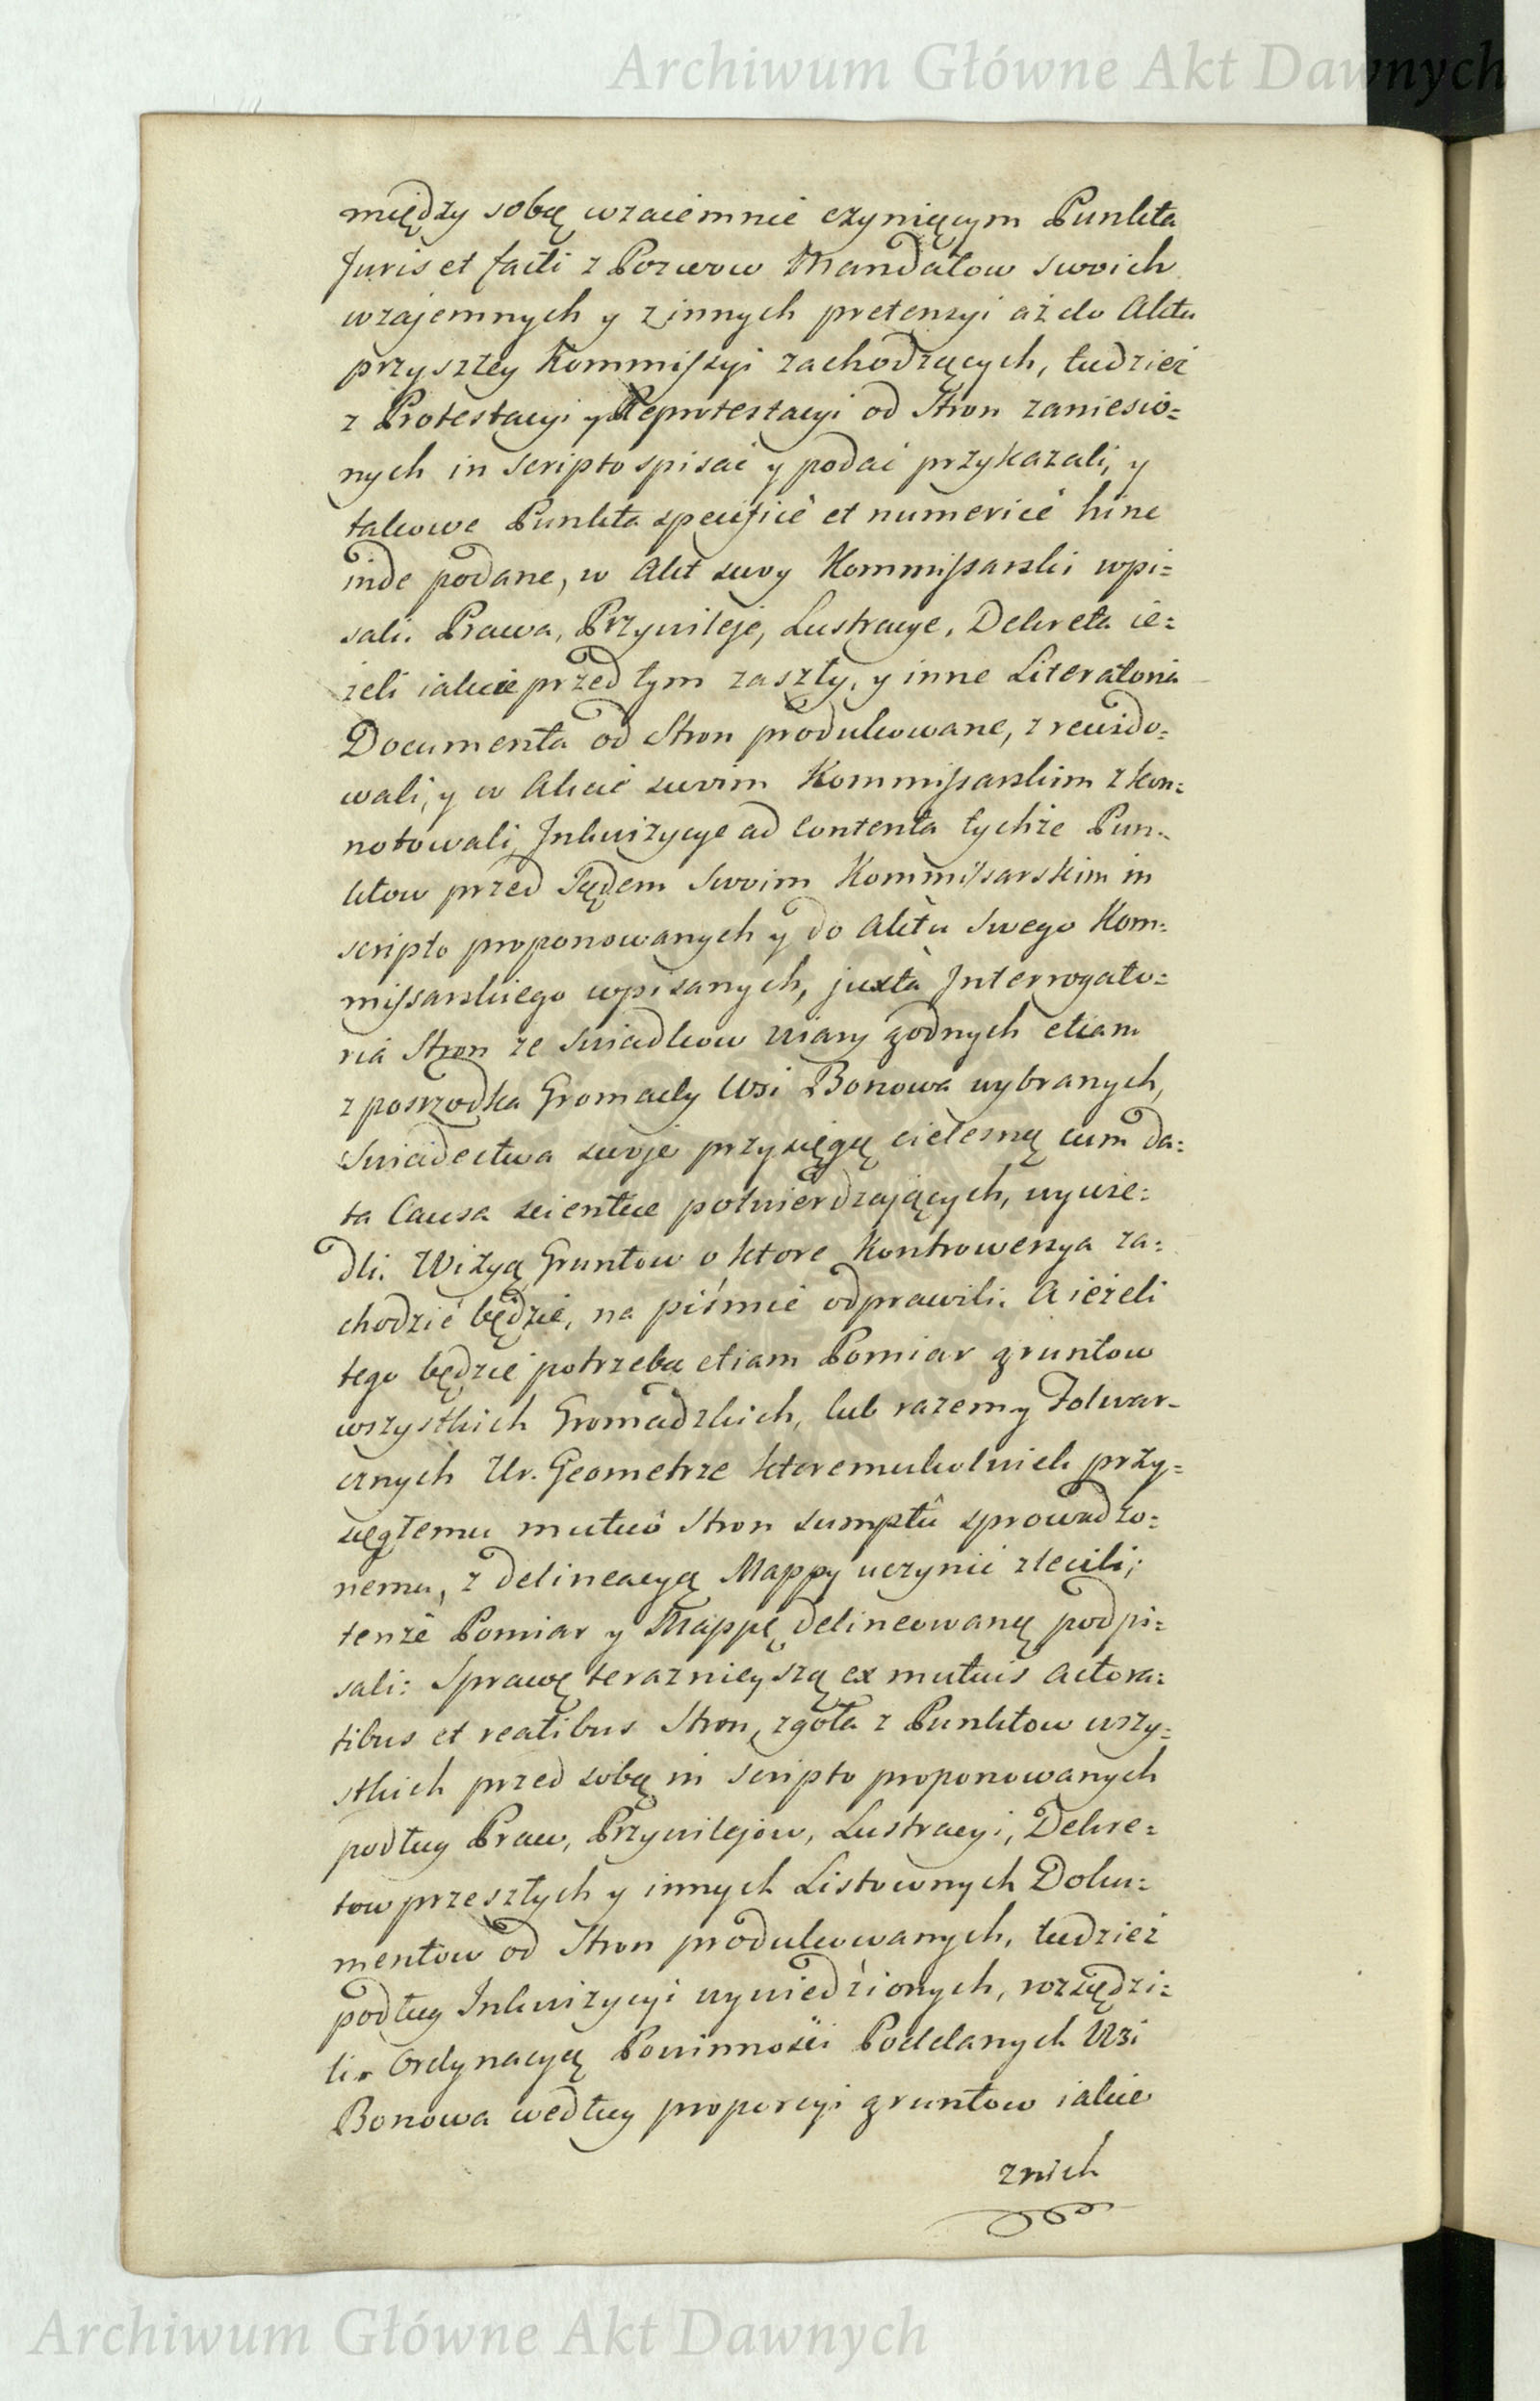 Archiwum Główne Akt Dawnych
między sobą wzaiemnie czyniącym Punkta
Juris et facti z Pozwow Mandatow swoich
wzajemnych y z innych pretensyi aż do Aktu
przyszłey Kommissyi zachodzących, tudzież
z Protestacyi y Reprotestacyi od Stron zaniesio=
nych in scripto spisać y podać przykazali, y
takowe Punkta specificè et numericè hinc
inde podane, w Akt swoy Kommissarski wpi=
sali. Prawa, Przywileje, Lustracye, Dekreta ie=
żeli iakie przed tym zaszły, y inne Literatoria
Documenta od Stron produkowane, zrewido=
wali, y w Akcie swoim Kommissarskim zkon=
notowali, Inkwizycye ad Contenta tychże Pun=
ktow przed Sądem Swoim Kommissarskim in
scripto proponowanych y do Aktu Swego Kom=
missarskiego wpisanych, juxta Interrogato=
ria Stron ze Swiadkow wiary godnych etiam
z posrzodka Gromady Wsi Bonowa wybranych,
Swiadectwa swoje przysięgą cielesną cum da=
ta Causa scientiae potwierdzających, wywie=
dli. Wizyą Gruntow o ktore Kontrowersya za=
chodzić będzie, na piśmie odprawili. A ieżeli
tego będzie potrzeba etiam Pomiar gruntow
wszystkich Gromadzkich, lub razem y Folwar=
cznych Ur. Geometrze ktoremukolwiek przy=
sięgłemu mutuô Stron sumptû sprowadzo=
nemu, z delineacyą Mappy uczynić zlecili;
tenże Pomiar y Mappę delineowaną podpi=
sali: Sprawę teraznieyszą ex mutuis Actora=
tibus et reatibus Stron, zgoła z Punktow wszy=
stkich przed sobą in scripto proponowanych
podług Praw, Przywilejow, Lustracyi, Dekre=
tow przeszłych y innych Listownych Doku=
mentow od Stron produkowanych, tudzież
podług Inkwizycyi wywiedzionych, rozsądzi=
li. Ordynacyą Powinności Poddanych Wsi
Bonowa według proporcyi gruntow iakie
z nich
Archiwum Główne Akt Dawnych